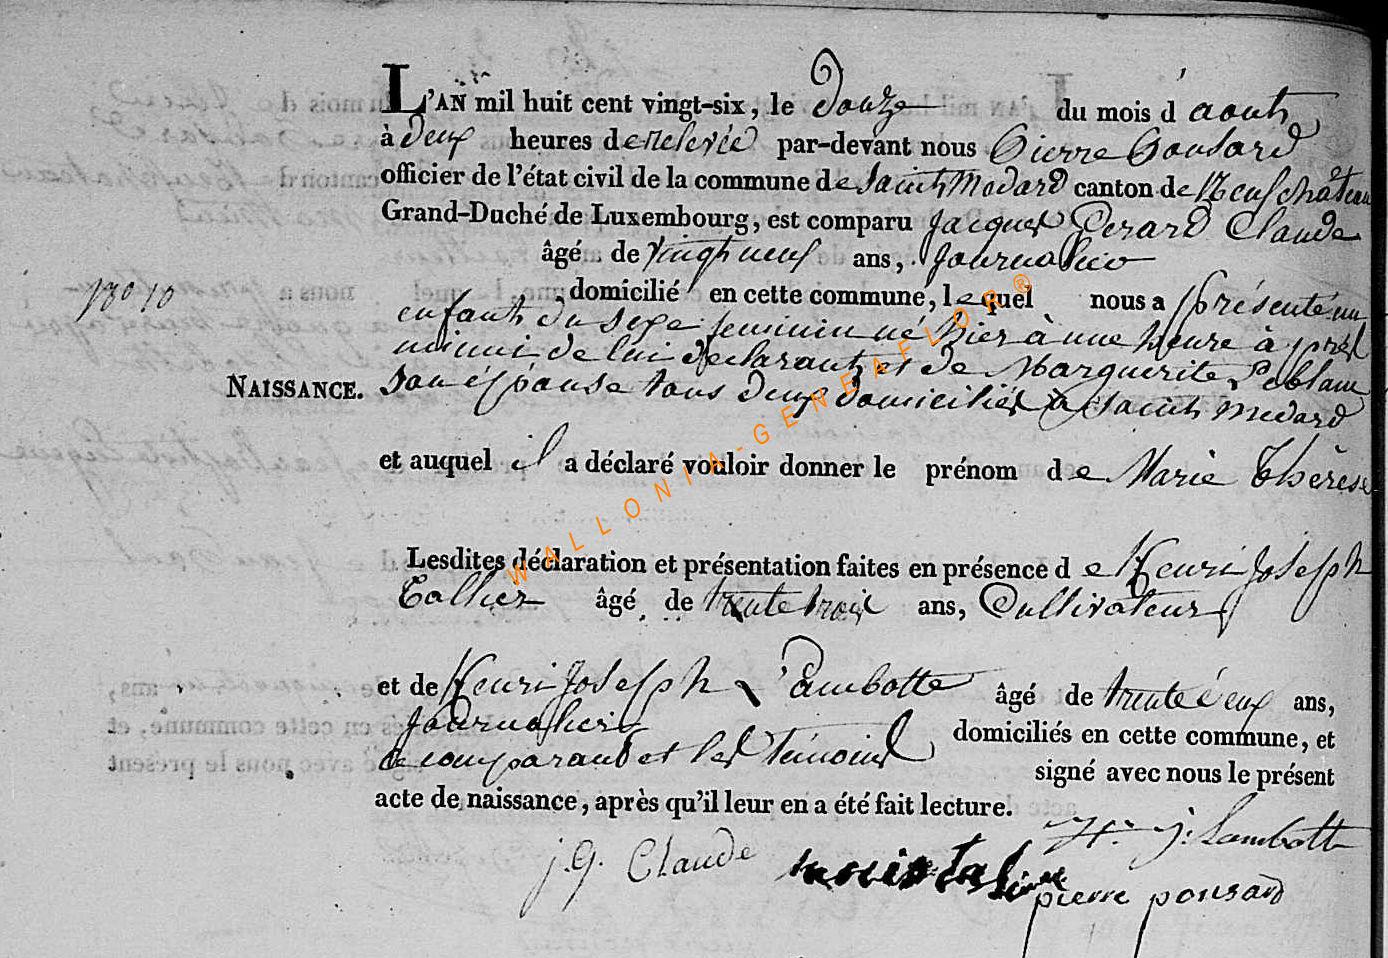 L'AN mil huit cent vingt-six, le Douze du mois d'aout
à deux heures de relevée par-devant nous Pierre Ponsard
officier de l'état civil de la commune de Saint Medard canton de Neufchâteau
Grand-Duché de Luxembourg, est comparu Jacques Gerard Claude
âgé de vingt neuf ans, Journalier
domicilié en cette commune, lequel nous a présenté un
enfant du sexe feminin né hier à une heure après
minuit de lui déclarant et de Marguerite Leblanc
NAISSANCE. son épouse tous deux domiciliés à Saint Medard
et auquel il a déclaré vouloir donner le prénom de Marie Thérèse
Lesdites déclaration et présentation faites en présence de Henri Joseph
âgé de trente trois ans, Cultivateur
et de Henri Joseph Lambotte âgé de trente deux ans,
Journalier domiciliés en cette commune, et
le comparant et les témoins signé avec nous le présent
acte de naissance, après qu'il leur en a été fait lecture.
H. j. Lambotte
j. G. Claude
pierre ponsard
WALLONIA-GENEAFLOR®